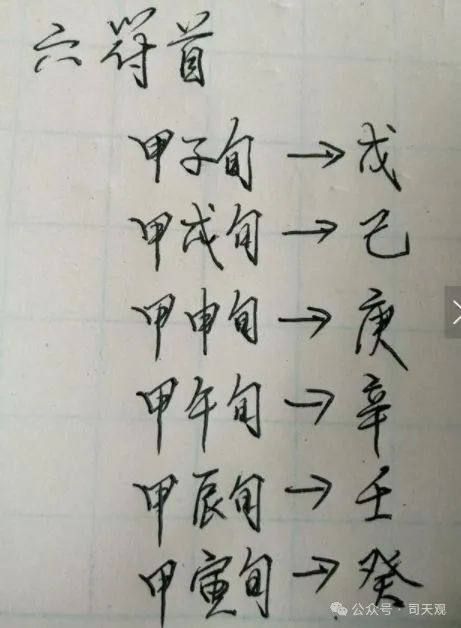 六符首
甲子旬→戊
甲戌旬→己
甲申旬→庚
甲午旬→辛
甲辰旬→壬
甲寅旬→癸
公众号·司天观